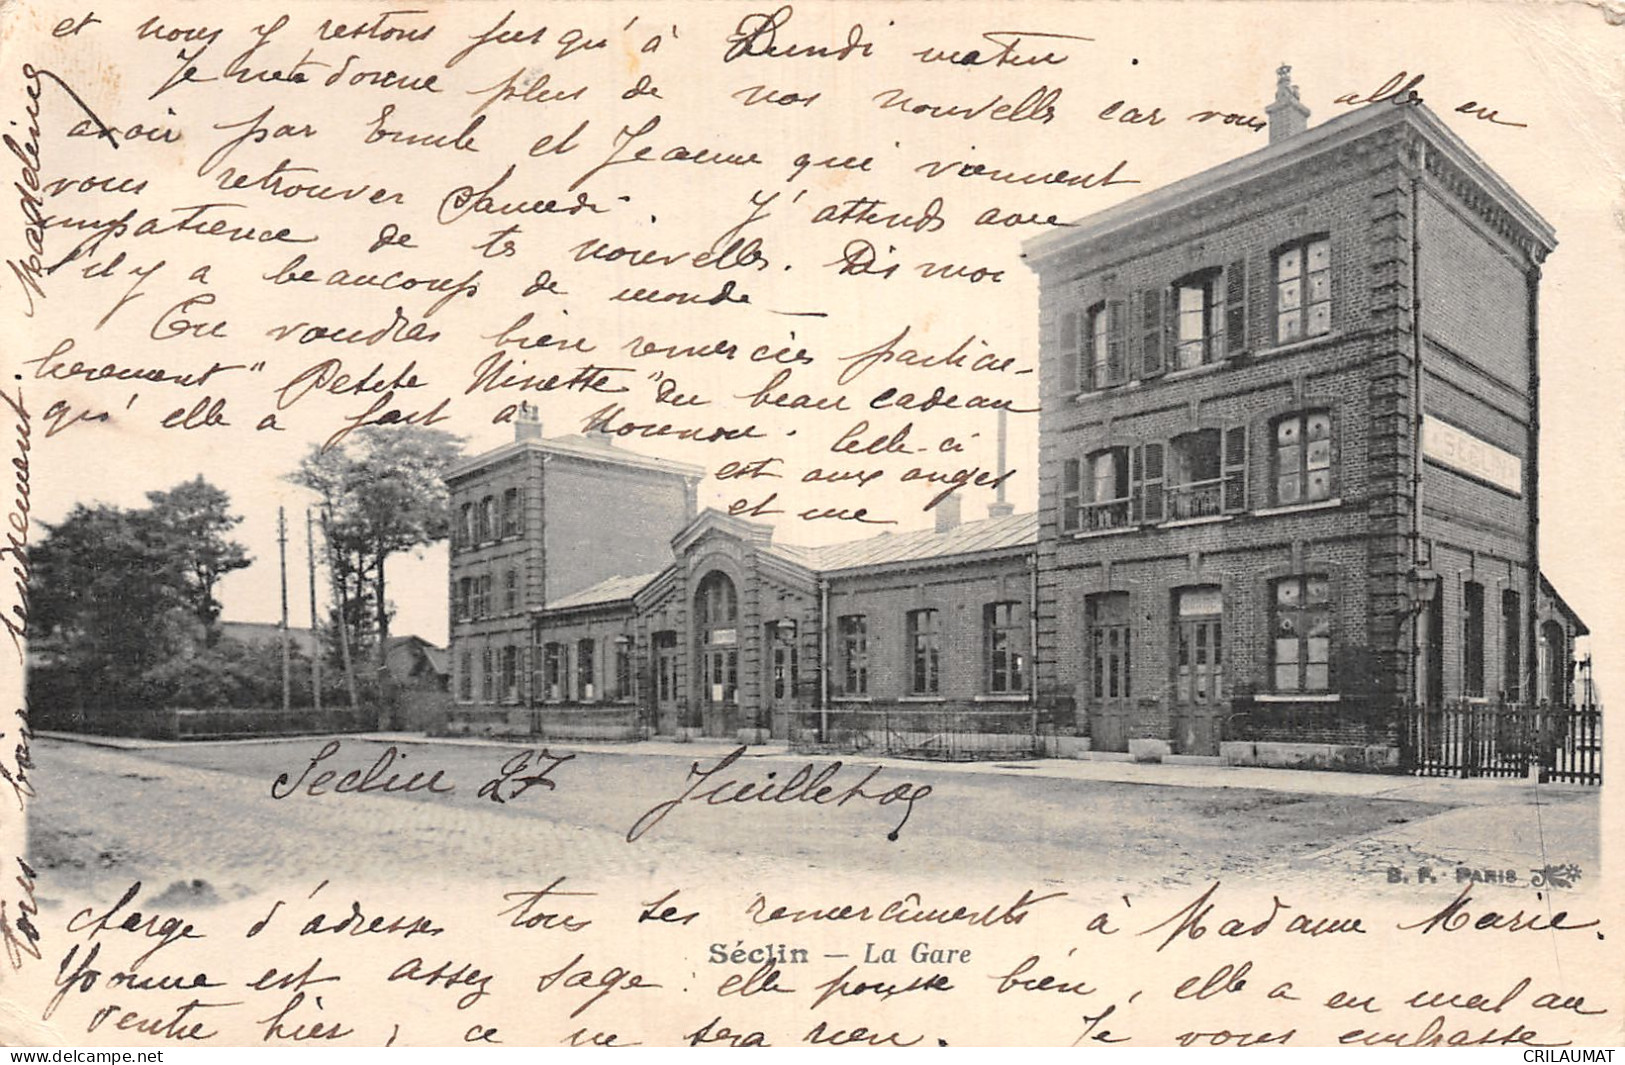 et nous y restons jusqu'à Lundi matin.
Je ne te donne plus de nos nouvelles car vous allez en
avoir par Emile et Jeanne qui viennent
vous retrouver Samedi. J'attends avec
impatience de tes nouvelles. Dis moi
s'il y a beaucoup de monde
Tu voudras bien remercier particu-
lièrement "Petite Ninette" du beau cadeau
qu'elle a fait à
Celle-ci
est aux anges
et me
SECLIN
Seclin 27 Juillet 02
B. F. PARIS
charge d'adresser tous ses remerciments à Madame Marie.
Séclin — La Gare
Yvonne est assez sage : elle pousse bien, elle a eu mal au
ventre hier, ce ne sera rien. Je vous embrasse
tous bien tendrement. Madeleine
CRILAUMAT